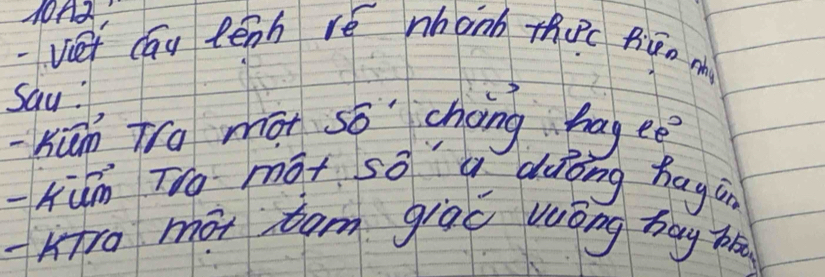 10A2
- Viết câu lệnh rẽ nhánh thực hiện như
sau:
- Kiểm Tra một số chẵng hay lẻ
- Kiểm Tra một số a dương hay âm
- KTra một tam giác vuông hay